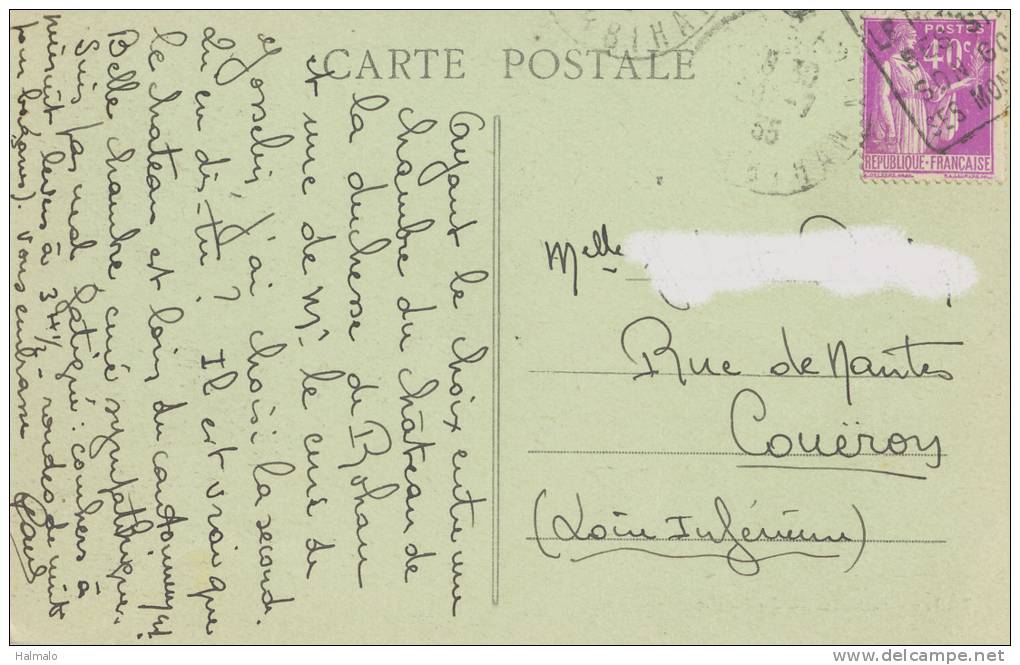 CARTE POSTALE
Ayant le choix entre une
chambre du château de
la duchesse de Rohan
et une de Mr le curé de
Josselin, j'ai choisi la seconde.
Qu'en dis-tu? Il est vrai que
le château est loin du cantonnement
Belle chambre, curé sympathique.
Suis pas mal fatigué: couchers à
minuit levers à 3 H 1/2 rondes de nuit
Vous embrasse
Melle
Rue de Nantes
Couëron
(Loire Inférieure)
POSTES
40c
REPUBLIQUE-FRANÇAISE
BIHAN
35
Halmalo
http://www.delcampe.net